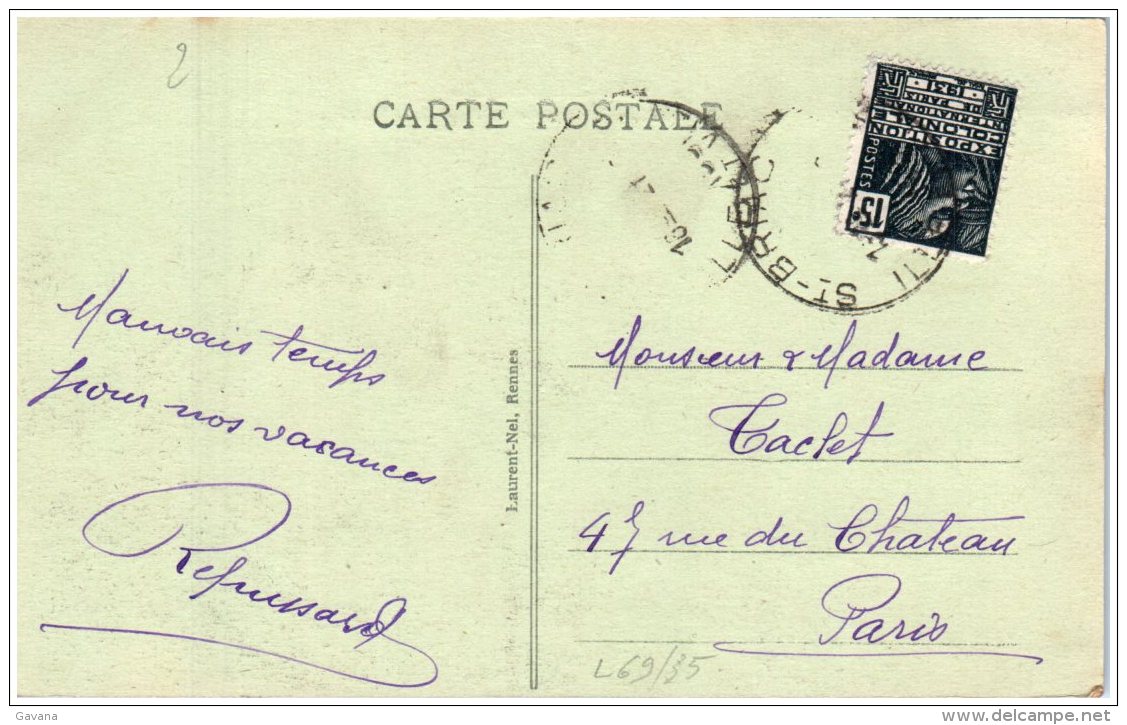 2
CARTE POSTALE
EXPOSITION
COLONIALE
INTERNATIONALE
DE PARIS
1931
POSTES
15c
ST-BRIAC
Mauvais temps
pour nos vacances
Laurent-Nel, Rennes
Monsieur & Madame
Taclet
47 rue du Chateau
Paris
L69/35
Gavana
www.delcampe.net